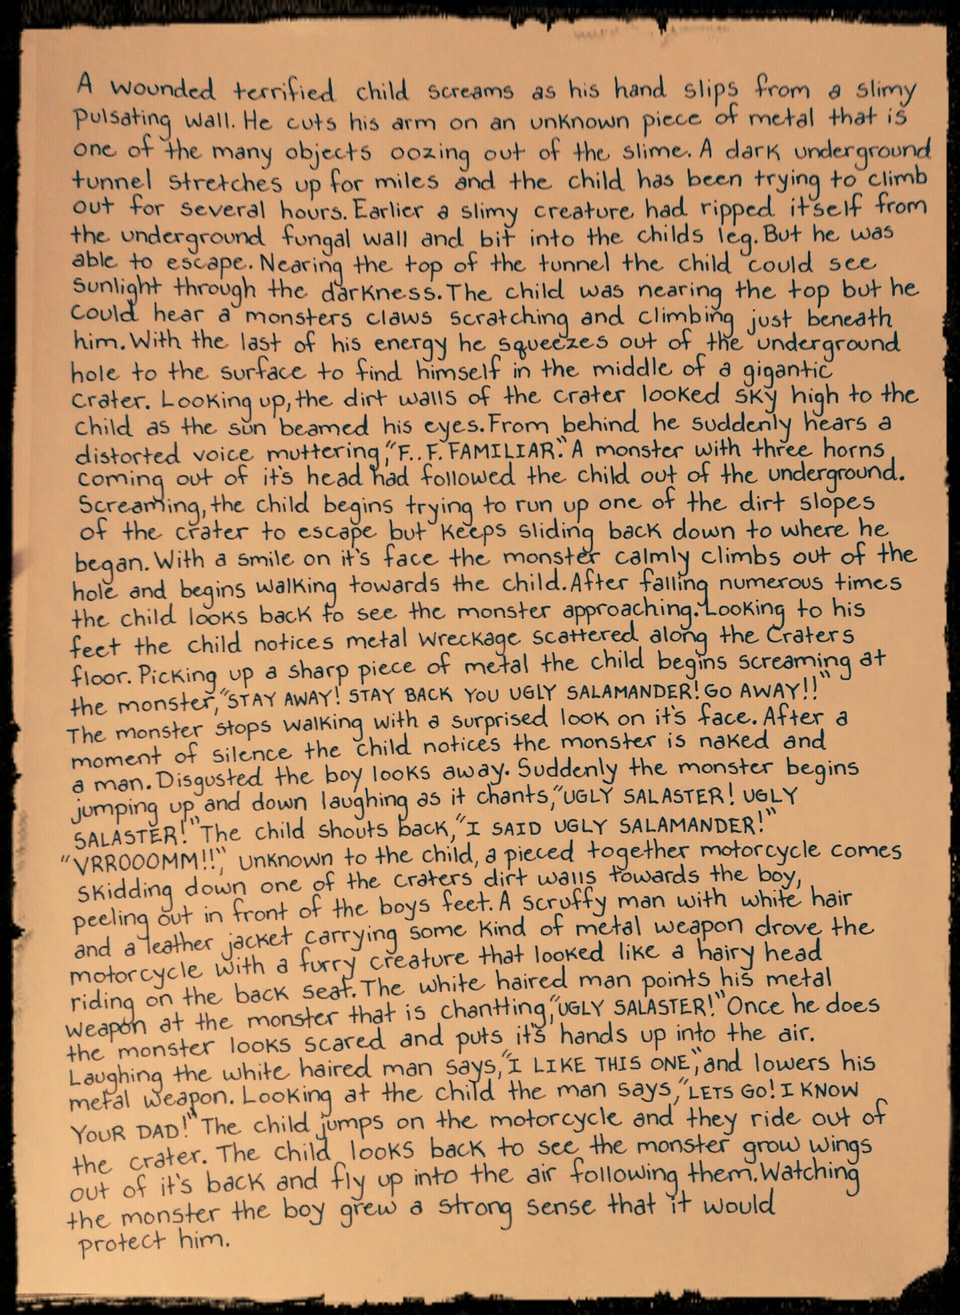 A wounded terrified child screams as his hand slips from a slimy
pulsating wall. He cuts his arm on an unknown piece of metal that is
one of the many objects oozing out of the slime. A dark underground
tunnel stretches up for miles and the child has been trying to climb
out for several hours. Earlier a slimy creature had ripped itself from
the underground fungal wall and bit into the childs leg. But he was
able to escape. Nearing the top of the tunnel the child could see
sunlight through the darkness. The child was nearing the top but he
could hear a monsters claws scratching and climbing just beneath
him. With the last of his energy he squeezes out of the underground
hole to the surface to find himself in the middle of a gigantic
crater. Looking up, the dirt walls of the crater looked sky high to the
child as the sun beamed his eyes. From behind he suddenly hears a
distorted voice muttering, "F.. F. FAMILIAR." A monster with three horns
coming out of it's head had followed the child out of the underground.
Screaming, the child begins trying to run up one of the dirt slopes
of the crater to escape but keeps sliding back down to where he
began. With a smile on it's face the monster calmly climbs out of the
hole and begins walking towards the child. After falling numerous times
the child looks back to see the monster approaching. Looking to his
feet the child notices metal wreckage scattered along the craters
floor. Picking up a sharp piece of metal the child begins screaming at
the monster, "STAY AWAY! STAY BACK YOU UGLY SALAMANDER! GO AWAY!!"
The monster stops walking with a surprised look on it's face. After a
moment of silence the child notices the monster is naked and
a man. Disgusted the boy looks away. Suddenly the monster begins
jumping up and down laughing as it chants, "UGLY SALASTER! UGLY
SALASTER!" The child shouts back, "I SAID UGLY SALAMANDER!"
"VRROOOMM!!", unknown to the child, a pieced together motorcycle comes
skidding down one of the craters dirt walls towards the boy,
peeling out in front of the boys feet. A scruffy man with white hair
and a leather jacket carrying some kind of metal weapon drove the
motorcycle with a furry creature that looked like a hairy head
riding on the back seat. The white haired man points his metal
weapon at the monster that is chantting, "UGLY SALASTER!" Once he does
the monster looks scared and puts it's hands up into the air.
Laughing the white haired man says, "I LIKE THIS ONE", and lowers his
metal weapon. Looking at the child the man says, "LETS GO! I KNOW
YOUR DAD!" The child jumps on the motorcycle and they ride out of
the crater. The child looks back to see the monster grow wings
out of it's back and fly up into the air following them. Watching
the monster the boy grew a strong sense that it would
protect him.